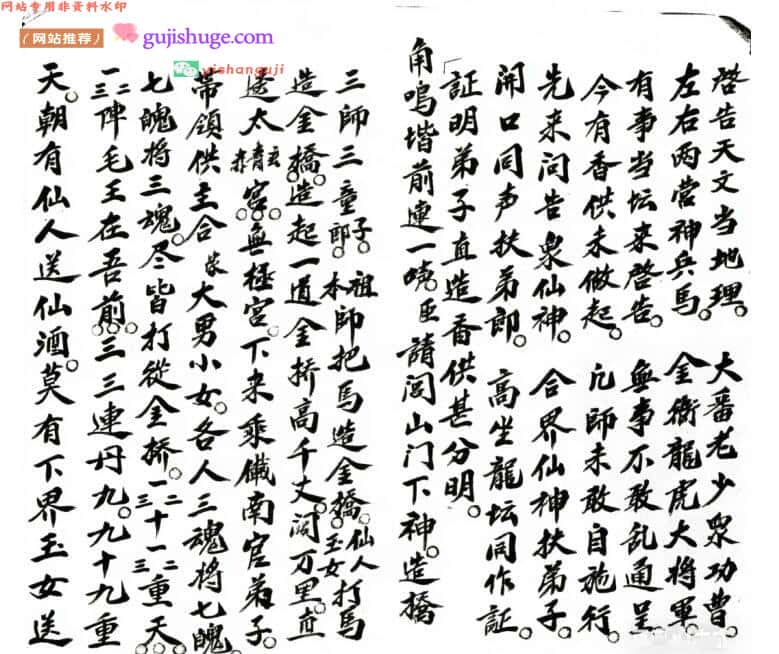 网站专用非资料水印
（网站推荐） gujishuge.com
yishanguji
啓告天文当地理。大番老少衆功曹。
左右两营神兵馬。金衛龍虎大将軍。
有事当坛来啓告。無事不敢乱通呈
今有香供未做起。凢師未敢自施行。
先来问告衆仙神。合界仙神扶弟子。
開口同声扶弟郎。高坐龍坛同作証。
証明弟子直造香供甚分明。
角鳴堦前連一。臣請闾山门下神。造橋
三師三童子郎。祖本師把馬造金橋。仙人玉女打馬
造金橋。造起一道金桥高千丈。阔万里。直
透太宮。無極宮。下来乘南宫弟子。
帶領供主合家大男小女。各人三魂将七魄
七魄将三魂。尽皆打從金桥。一二三十一二三重天。
一二三陣毛王在吾前。三三連丹九。九十九重
天。朝有仙人送仙酒。莫有下界玉女送